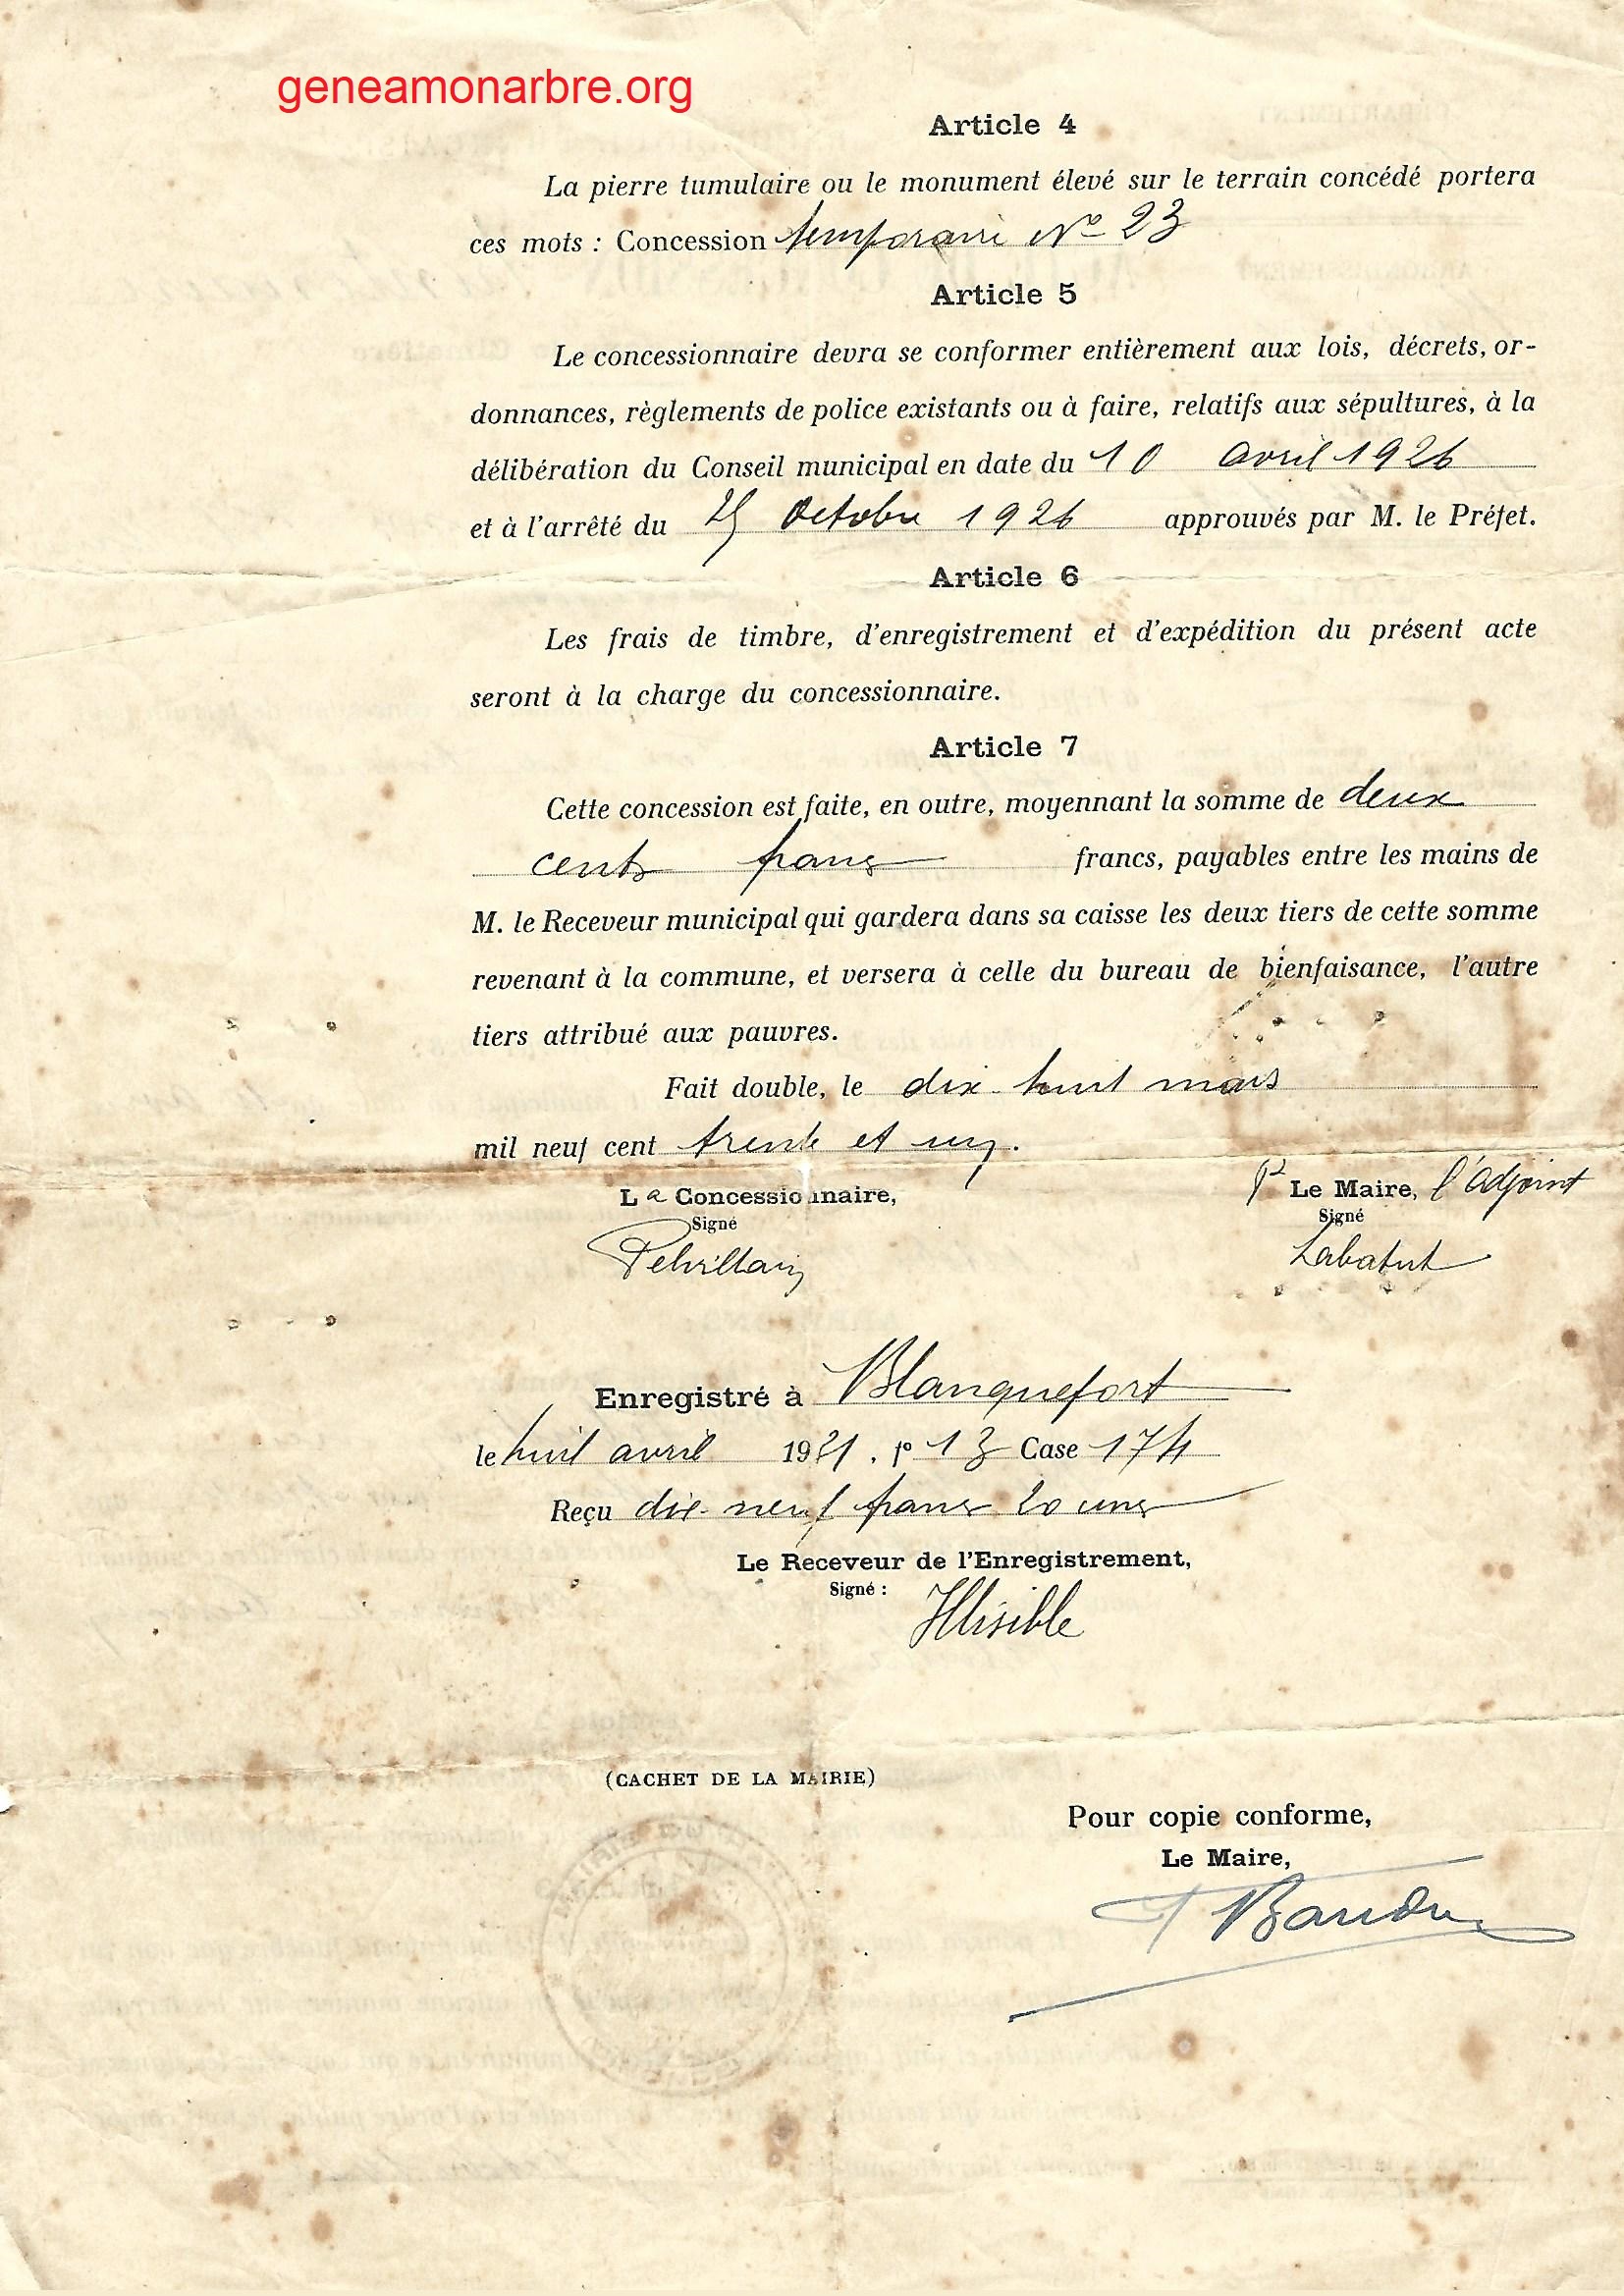 geneamonarbre.org
Article 4
La pierre tumulaire ou le monument élevé sur le terrain concédé portera
ces mots : Concession temporaire No 23
Article 5
Le concessionnaire devra se conformer entièrement aux lois, décrets, or-
donnances, règlements de police existants ou à faire, relatifs aux sépultures, à la
délibération du Conseil municipal en date du 10 avril 1926
et à l'arrêté du 25 Octobre 1926 approuvés par M. le Préfet.
Article 6
Les frais de timbre, d'enregistrement et d'expédition du présent acte
seront à la charge du concessionnaire.
Article 7
Cette concession est faite, en outre, moyennant la somme de deux
cents francs francs, payables entre les mains de
M. le Receveur municipal qui gardera dans sa caisse les deux tiers de cette somme
revenant à la commune, et versera à celle du bureau de bienfaisance, l'autre
tiers attribué aux pauvres.
Fait double, le dix huit mars
mil neuf cent trente et un.
La Concessionnaire,
Pr Le Maire, l'adjoint
Signé
Signé
Labatut
Enregistré à Blanquefort
le huit avril 1931, fo 13 Case 174
Reçu dix-neuf francs 20 cmes
Le Receveur de l'Enregistrement,
Signé :
Illisible
(CACHET DE LA MAIRIE)
Pour copie conforme,
Le Maire,